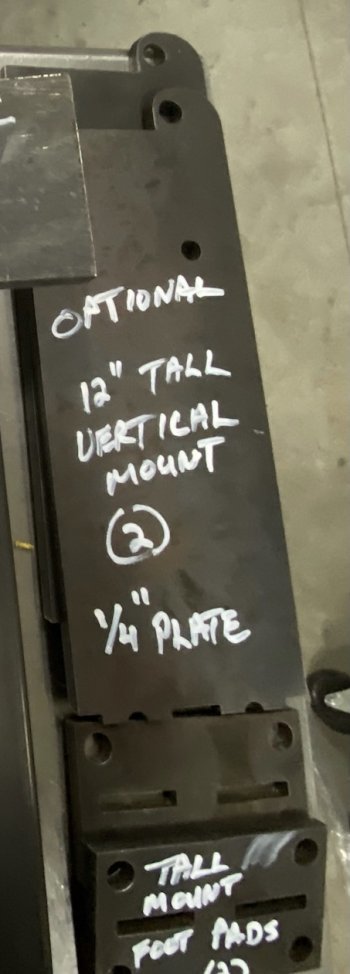 OPTIONAL
12" TALL
VERTICAL
MOUNT
2
1/4" PLATE
TALL
MOUNT
FOOT PADS